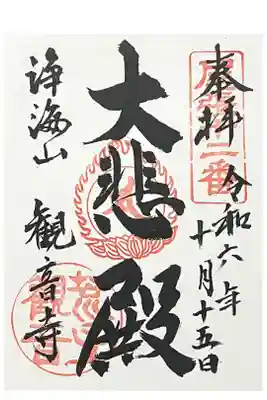 奉拝
令和六年
十月十五日
大悲殿
諍海山
観音寺